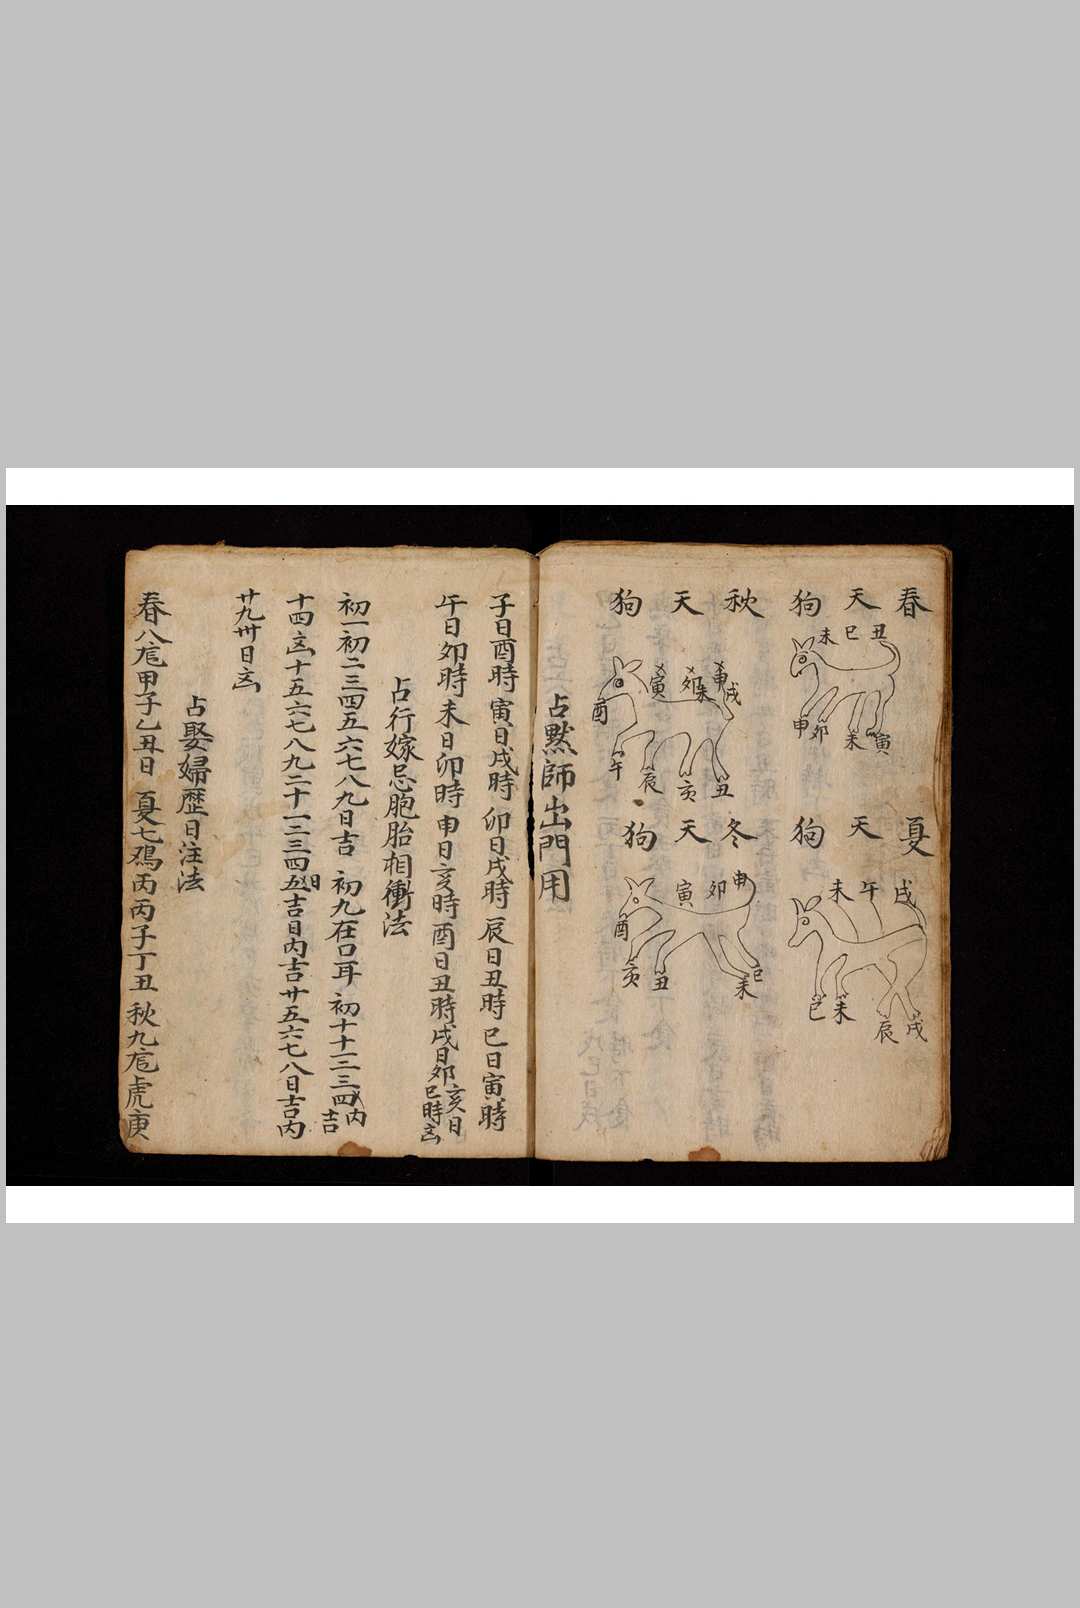 春天狗
丑 巳 未
申 卯 未 寅
夏天狗
戌 午 未
巳 未 辰 戌
秋天狗
申 戌 未 卯 寅
酉 午 辰 亥 丑
冬天狗
申 卯 寅
酉 亥 丑 未 巳
占黙師出門用
子日酉時 寅日戌時 卯日戌時 辰日丑時 巳日寅時
午日卯時 未日卯時 申日亥時 酉日丑時 戌日卯 亥日巳時
占行嫁忌胞胎相衝法
初一初二三四五六七八九日吉 初九在口耳 初十十一二三四内吉
十四 十五六七八九二十一二三四五日吉日内吉廿五六七八日吉内
廿九卅日
占娶婦歴日注法
春八 甲子乙丑日 夏七 丙丙子丁丑 秋九 虎庚